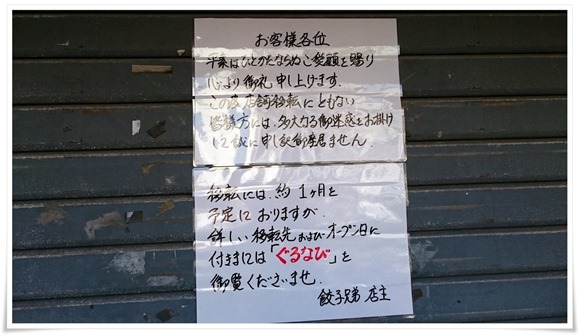 お客様各位
平素はひとかたならぬご愛顧を賜り
心より御礼申し上げます.
この度店舗移転にともない
皆様方には、多大なる御迷惑をお掛け
し誠に申し訳御座居ません.
移転には、約1ヶ月を
予定しておりますが.
詳しい移転先およびオープン日に
付きましては「ぐるなび」を
御覧くださいませ.
餃子兄弟 店主